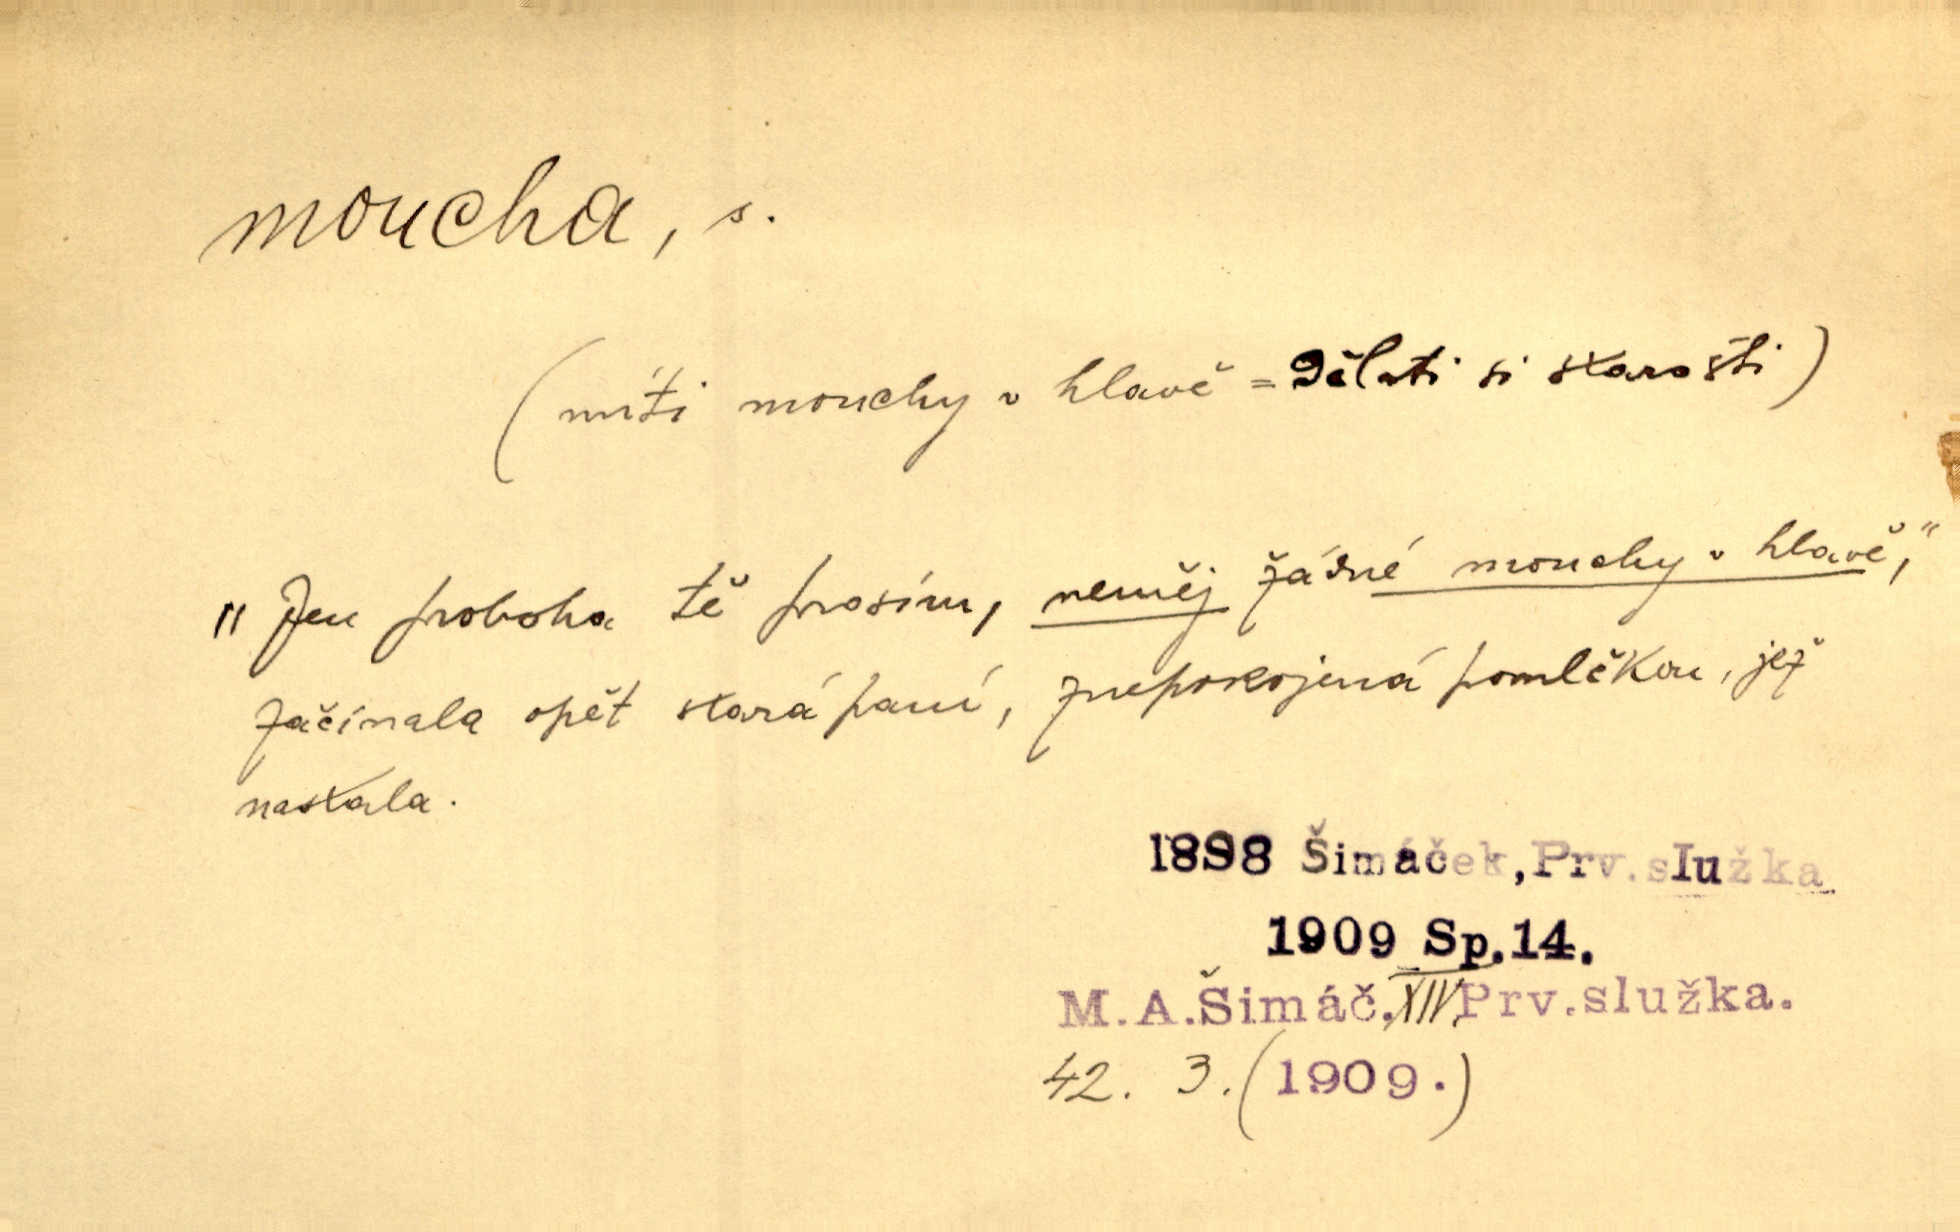 moucha, s.
(míti mouchy v hlavě = dělati si starosti)
"Jen proboha tě prosím, neměj žádné mouchy v hlavě,"
začínala opět stará paní, znepokojená pomlčkou, jež
nastala.
1898 Šimáček, Prv. služka
1909 Sp. 14.
M. A. Šimáč. XIV, Prv. služka.
42. 3. (1909.)